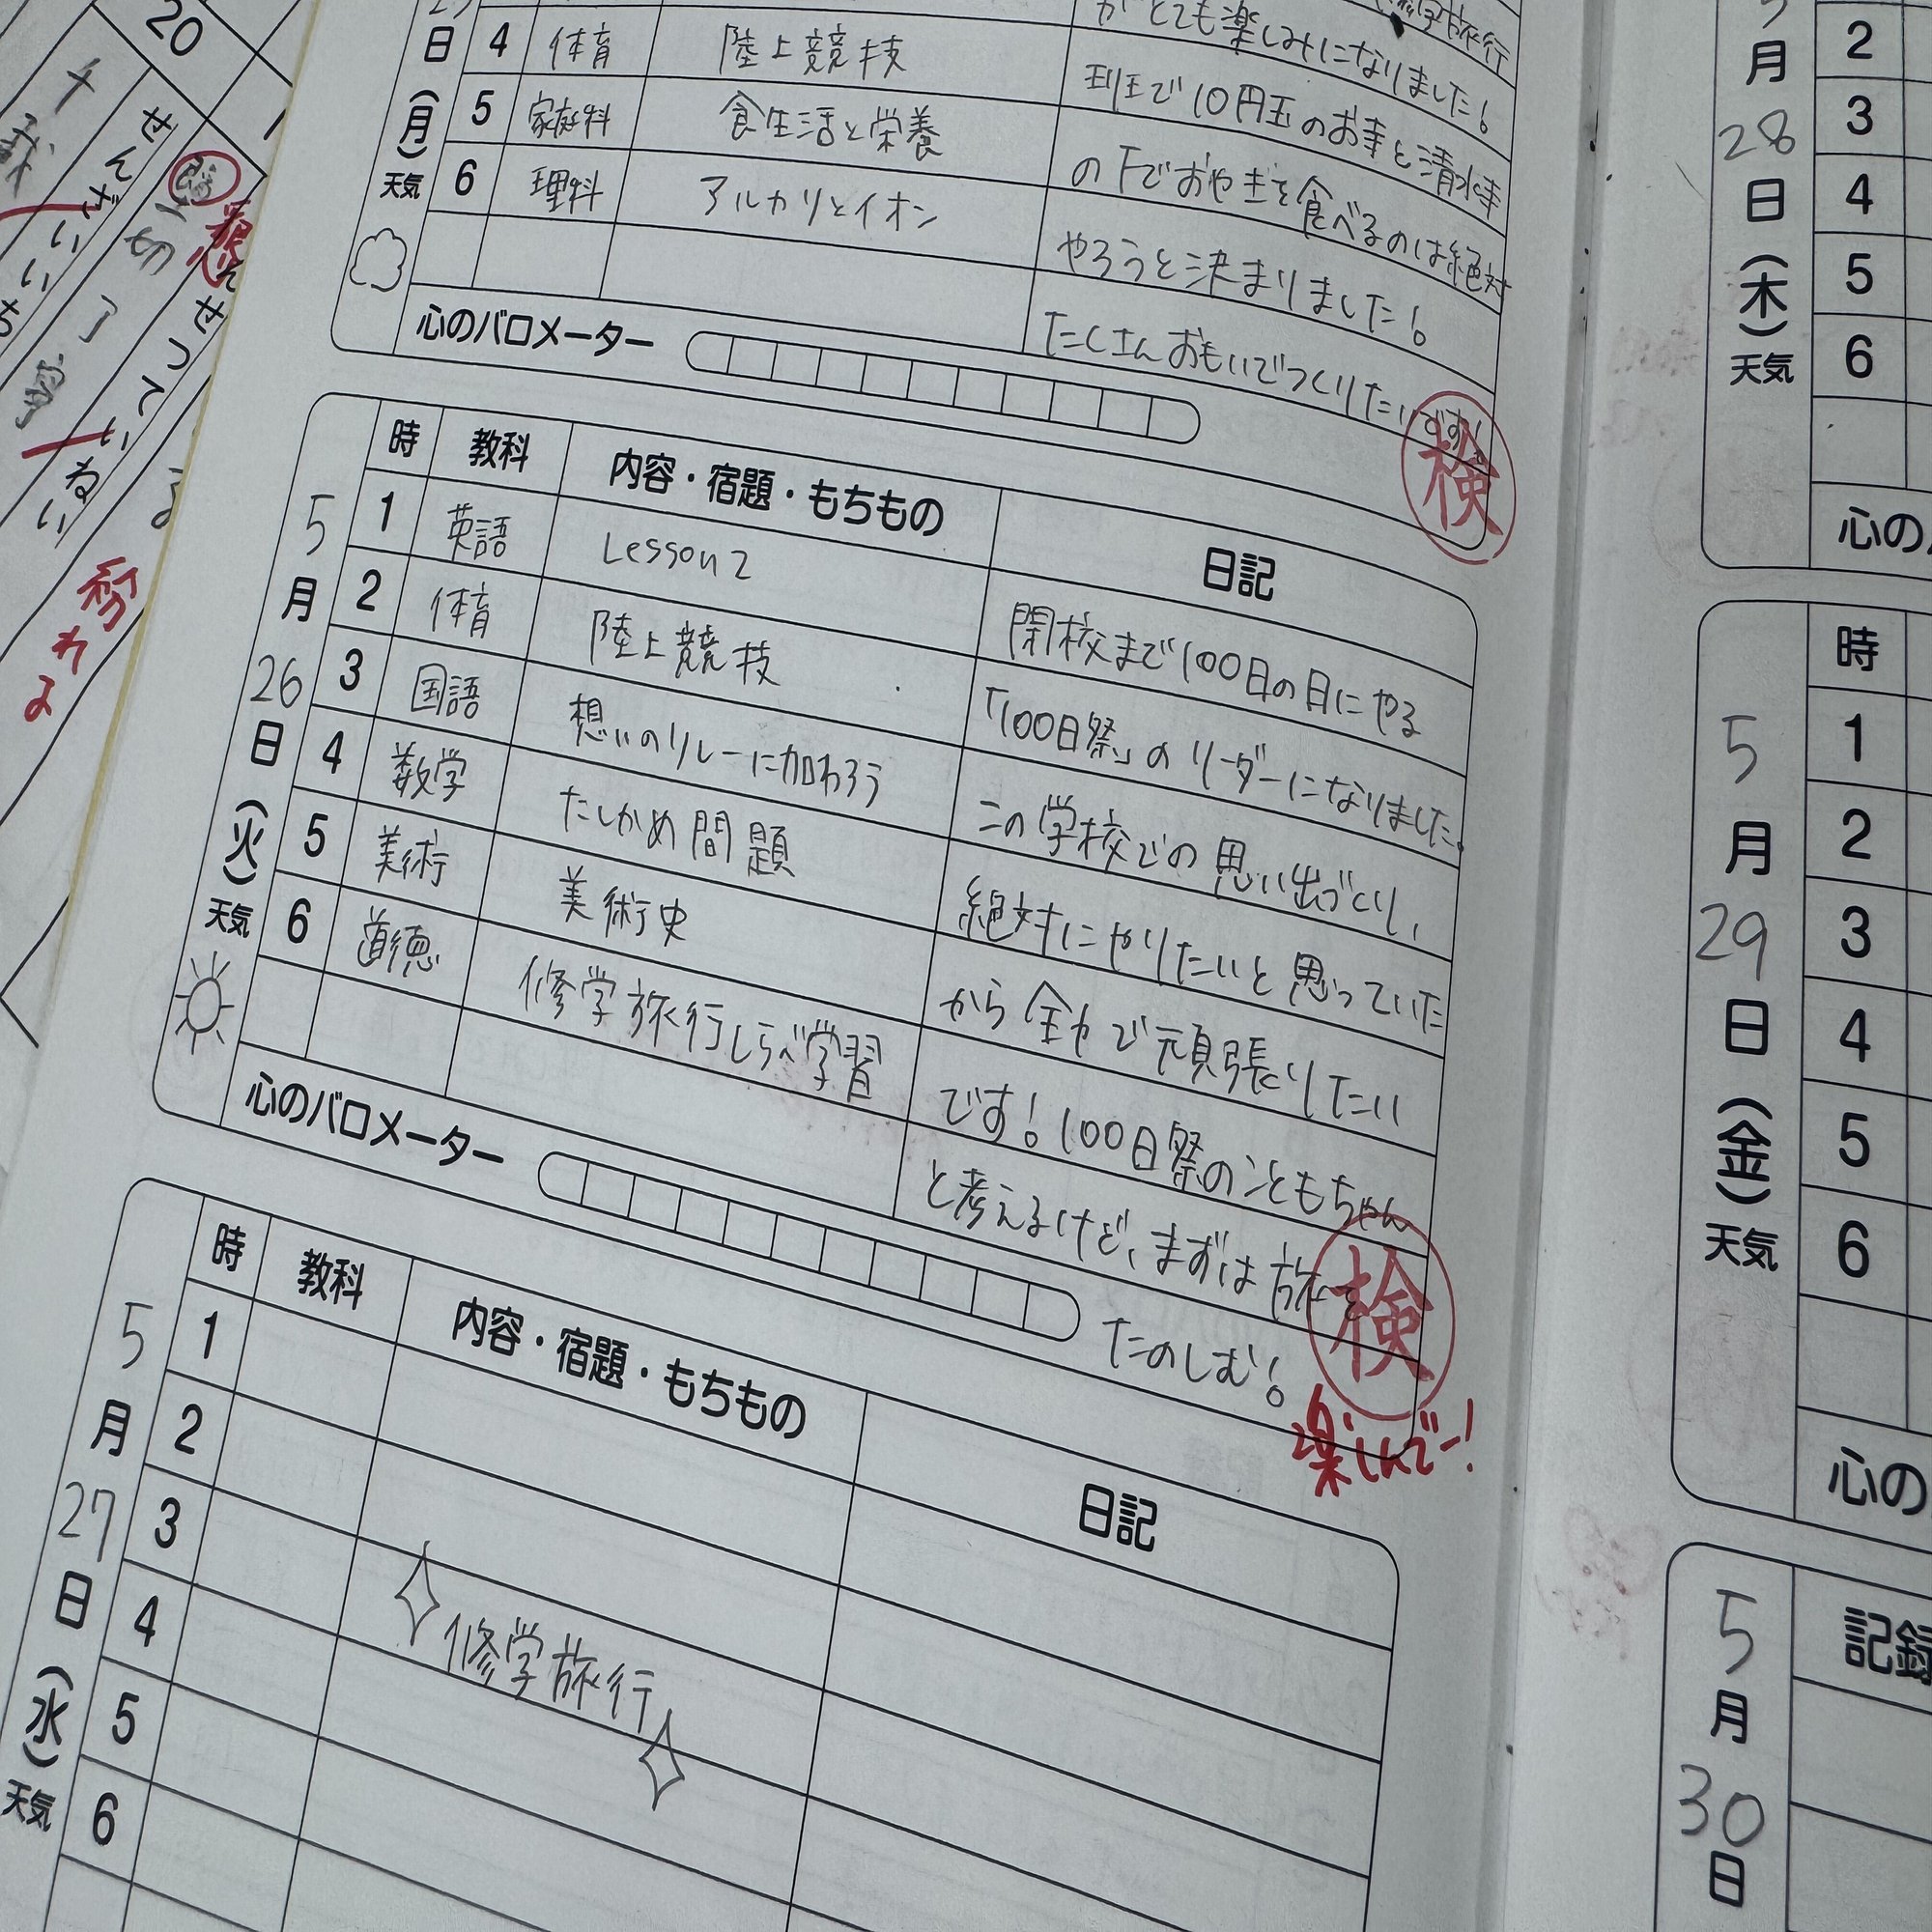 20
千
せんざいいち
一切
了
せつ
ていねい
る
紛れよ
日
(月)
天気
4 体育 陸上競技
5 家庭科 食生活と栄養
6 理科 アルカリとイオン
修学旅行
がとても楽しみになりました!
班で10円玉のお寺と清水寺
の下でおやきを食べるのは絶対
やろうと決まりました!
たくさんおもいでつくりたいです!
心のバロメーター
検
5月26日(火)
天気
時 教科 内容・宿題・もちもの 日記
1 英語 Lesson 2
2 体育 陸上競技
3 国語 想いのリレーに加わろう
4 数学 たしかめ問題
5 美術 美術史
6 道徳 修学旅行しらべ学習
閉校まで100日の日にやる
「100日祭」のリーダーになりました。
この学校での思い出づくり、
絶対にやりたいと思っていた
から全力で頑張りたい
です!100日祭のこともちゃん
と考えるけど、まずは旅を
たのしむ!
心のバロメーター
検
楽しんでー!
5月27日(水)
天気
時 教科 内容・宿題・もちもの 日記
1
2
3
4
5
6
修学旅行
5月28日(木)
天気
2
3
4
5
6
心の
5月29日(金)
天気
時
1
2
3
4
5
6
心の
5月30日
記録